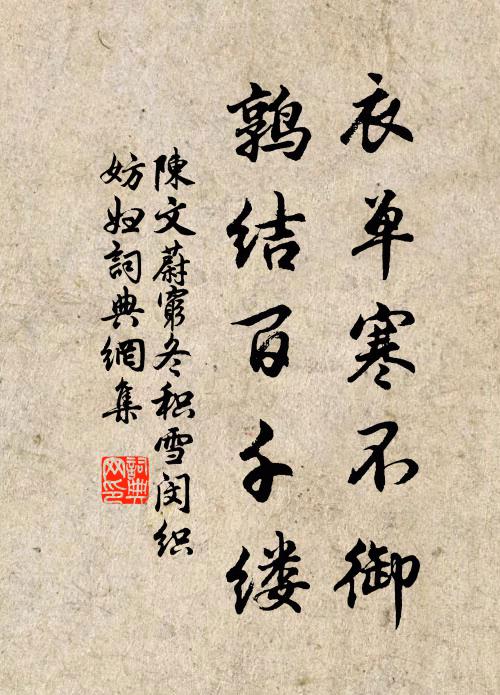 衣单寒不御
鹑结百千缕
陳文蔚窮冬积雪闵织
妨妞詞典網集
詞典
网印